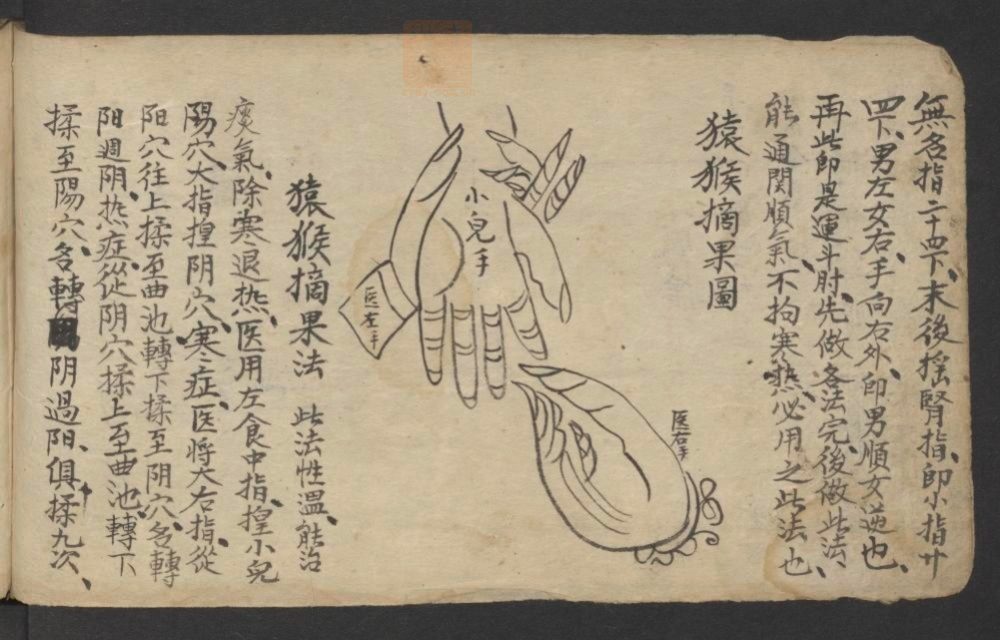 無名指二十四下、末後揺腎指、即小指廿
四下、男左女右、手向右外、即男順女逆也、
再此即是運斗肘、先做各法完、後做此法、
能通関順氣、不拘寒热、必用之此法也、
猿猴摘果圖
小兒手
医左手
医右手
猿猴摘果法 此法性溫、能治
痰氣、除寒退热、医用左食中指、揑小兒
陽穴、大指揑阴穴、寒症、医将大右指、從
阳穴往上揉至曲池、轉下揉至阴穴、名轉
阳過阴、热症、從阴穴揉上至曲池、轉下
揉至陽穴、名轉阴過阳、俱揉九次、